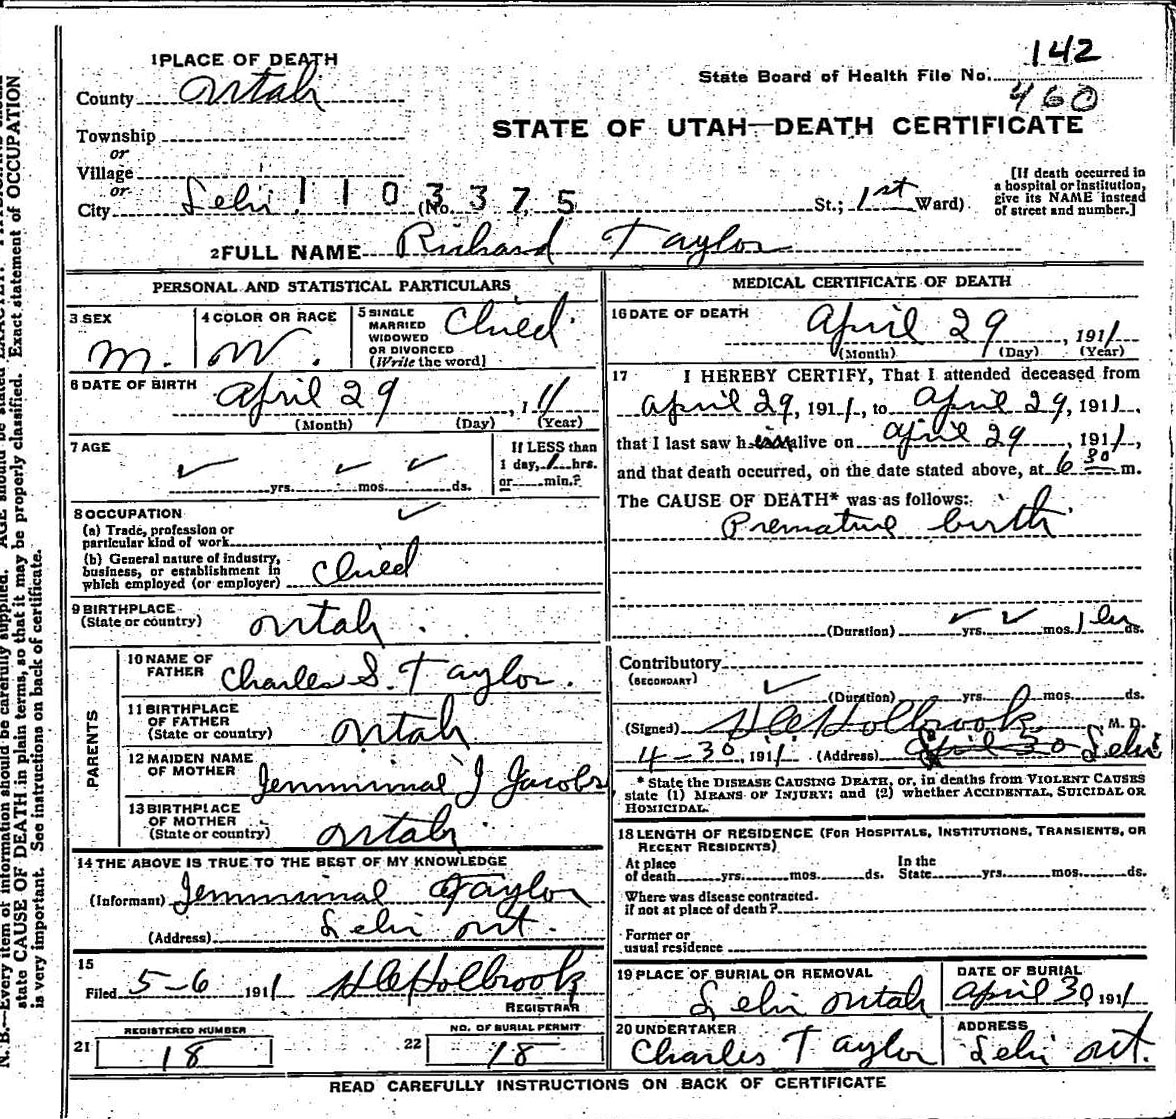 1 PLACE OF DEATH
County Utah
Township
or
Village
or
City Lehi 1103375 (No. St.; 1st Ward)
State Board of Health File No. 142
460
STATE OF UTAH—DEATH CERTIFICATE
[If death occurred in
a hospital or institution,
give its NAME instead
of street and number.]
2 FULL NAME Richard Taylor
PERSONAL AND STATISTICAL PARTICULARS
3 SEX
M.
4 COLOR OR RACE
W.
5 SINGLE
MARRIED
WIDOWED
OR DIVORCED
(Write the word)
Child
6 DATE OF BIRTH
April 29, 1 11
(Month) (Day) (Year)
7 AGE
✓ yrs. ✓ mos. ✓ ds.
If LESS than
1 day, 1 hrs.
or min.?
8 OCCUPATION ✓
(a) Trade, profession or
particular kind of work
(b) General nature of industry,
business, or establishment in
which employed (or employer) Child
9 BIRTHPLACE
(State or country) Utah.
PARENTS
10 NAME OF
FATHER Charles S. Taylor.
11 BIRTHPLACE
OF FATHER
(State or country) Utah
12 MAIDEN NAME
OF MOTHER Jemmimal J Jacobs
13 BIRTHPLACE
OF MOTHER
(State or country) Utah
14 THE ABOVE IS TRUE TO THE BEST OF MY KNOWLEDGE
(Informant) Jemmimal Taylor
(Address) Lehi Ut.
15
Filed 5-6 1911 Holbrook
REGISTRAR
21 REGISTERED NUMBER
18
22 NO. OF BURIAL PERMIT
18
MEDICAL CERTIFICATE OF DEATH
16 DATE OF DEATH
April 29, 1911
(Month) (Day) (Year)
17 I HEREBY CERTIFY, That I attended deceased from
April 29, 1911, to April 29, 1911,
that I last saw him alive on April 29, 1911,
and that death occurred, on the date stated above, at 6 30 m.
The CAUSE OF DEATH* was as follows:
Premature birth
(Duration) ✓ yrs. ✓ mos. 1 hr ds.
Contributory
(SECONDARY)
✓ (Duration) yrs. mos. ds.
(Signed) Holbrook M. D.
4-30, 1911 (Address) April 30 Lehi
* State the DISEASE CAUSING DEATH, or, in deaths from VIOLENT CAUSES
state (1) MEANS OF INJURY; and (2) whether ACCIDENTAL, SUICIDAL OR
HOMICIDAL.
18 LENGTH OF RESIDENCE (FOR HOSPITALS, INSTITUTIONS, TRANSIENTS, OR
RECENT RESIDENTS)
At place
of death yrs. mos. ds.
In the
State yrs. mos. ds.
Where was disease contracted.
if not at place of death?
Former or
usual residence
19 PLACE OF BURIAL OR REMOVAL
Lehi Utah
DATE OF BURIAL
April 30 1911
20 UNDERTAKER
Charles Taylor
ADDRESS
Lehi Ut.
READ CAREFULLY INSTRUCTIONS ON BACK OF CERTIFICATE
N. B.—Every item of information should be carefully supplied. AGE should be stated EXACTLY.
state CAUSE OF DEATH in plain terms, so that it may be properly classified. Exact statement of OCCUPATION
is very important. See instructions on back of certificate.